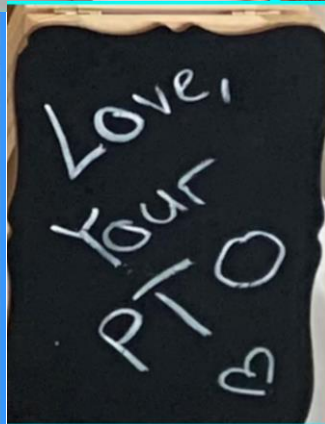 Love,
Your
PTO